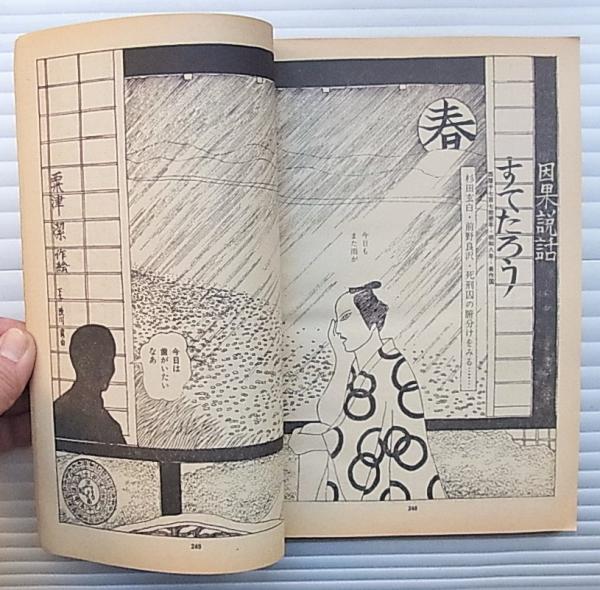 因果説話
すてたろう
杉田玄白・前野良沢・死刑囚の腑分けをみる……
春
今日も
また雨が
今日は
歯がいたい
なあ
粟津 潔 作絵
248
249